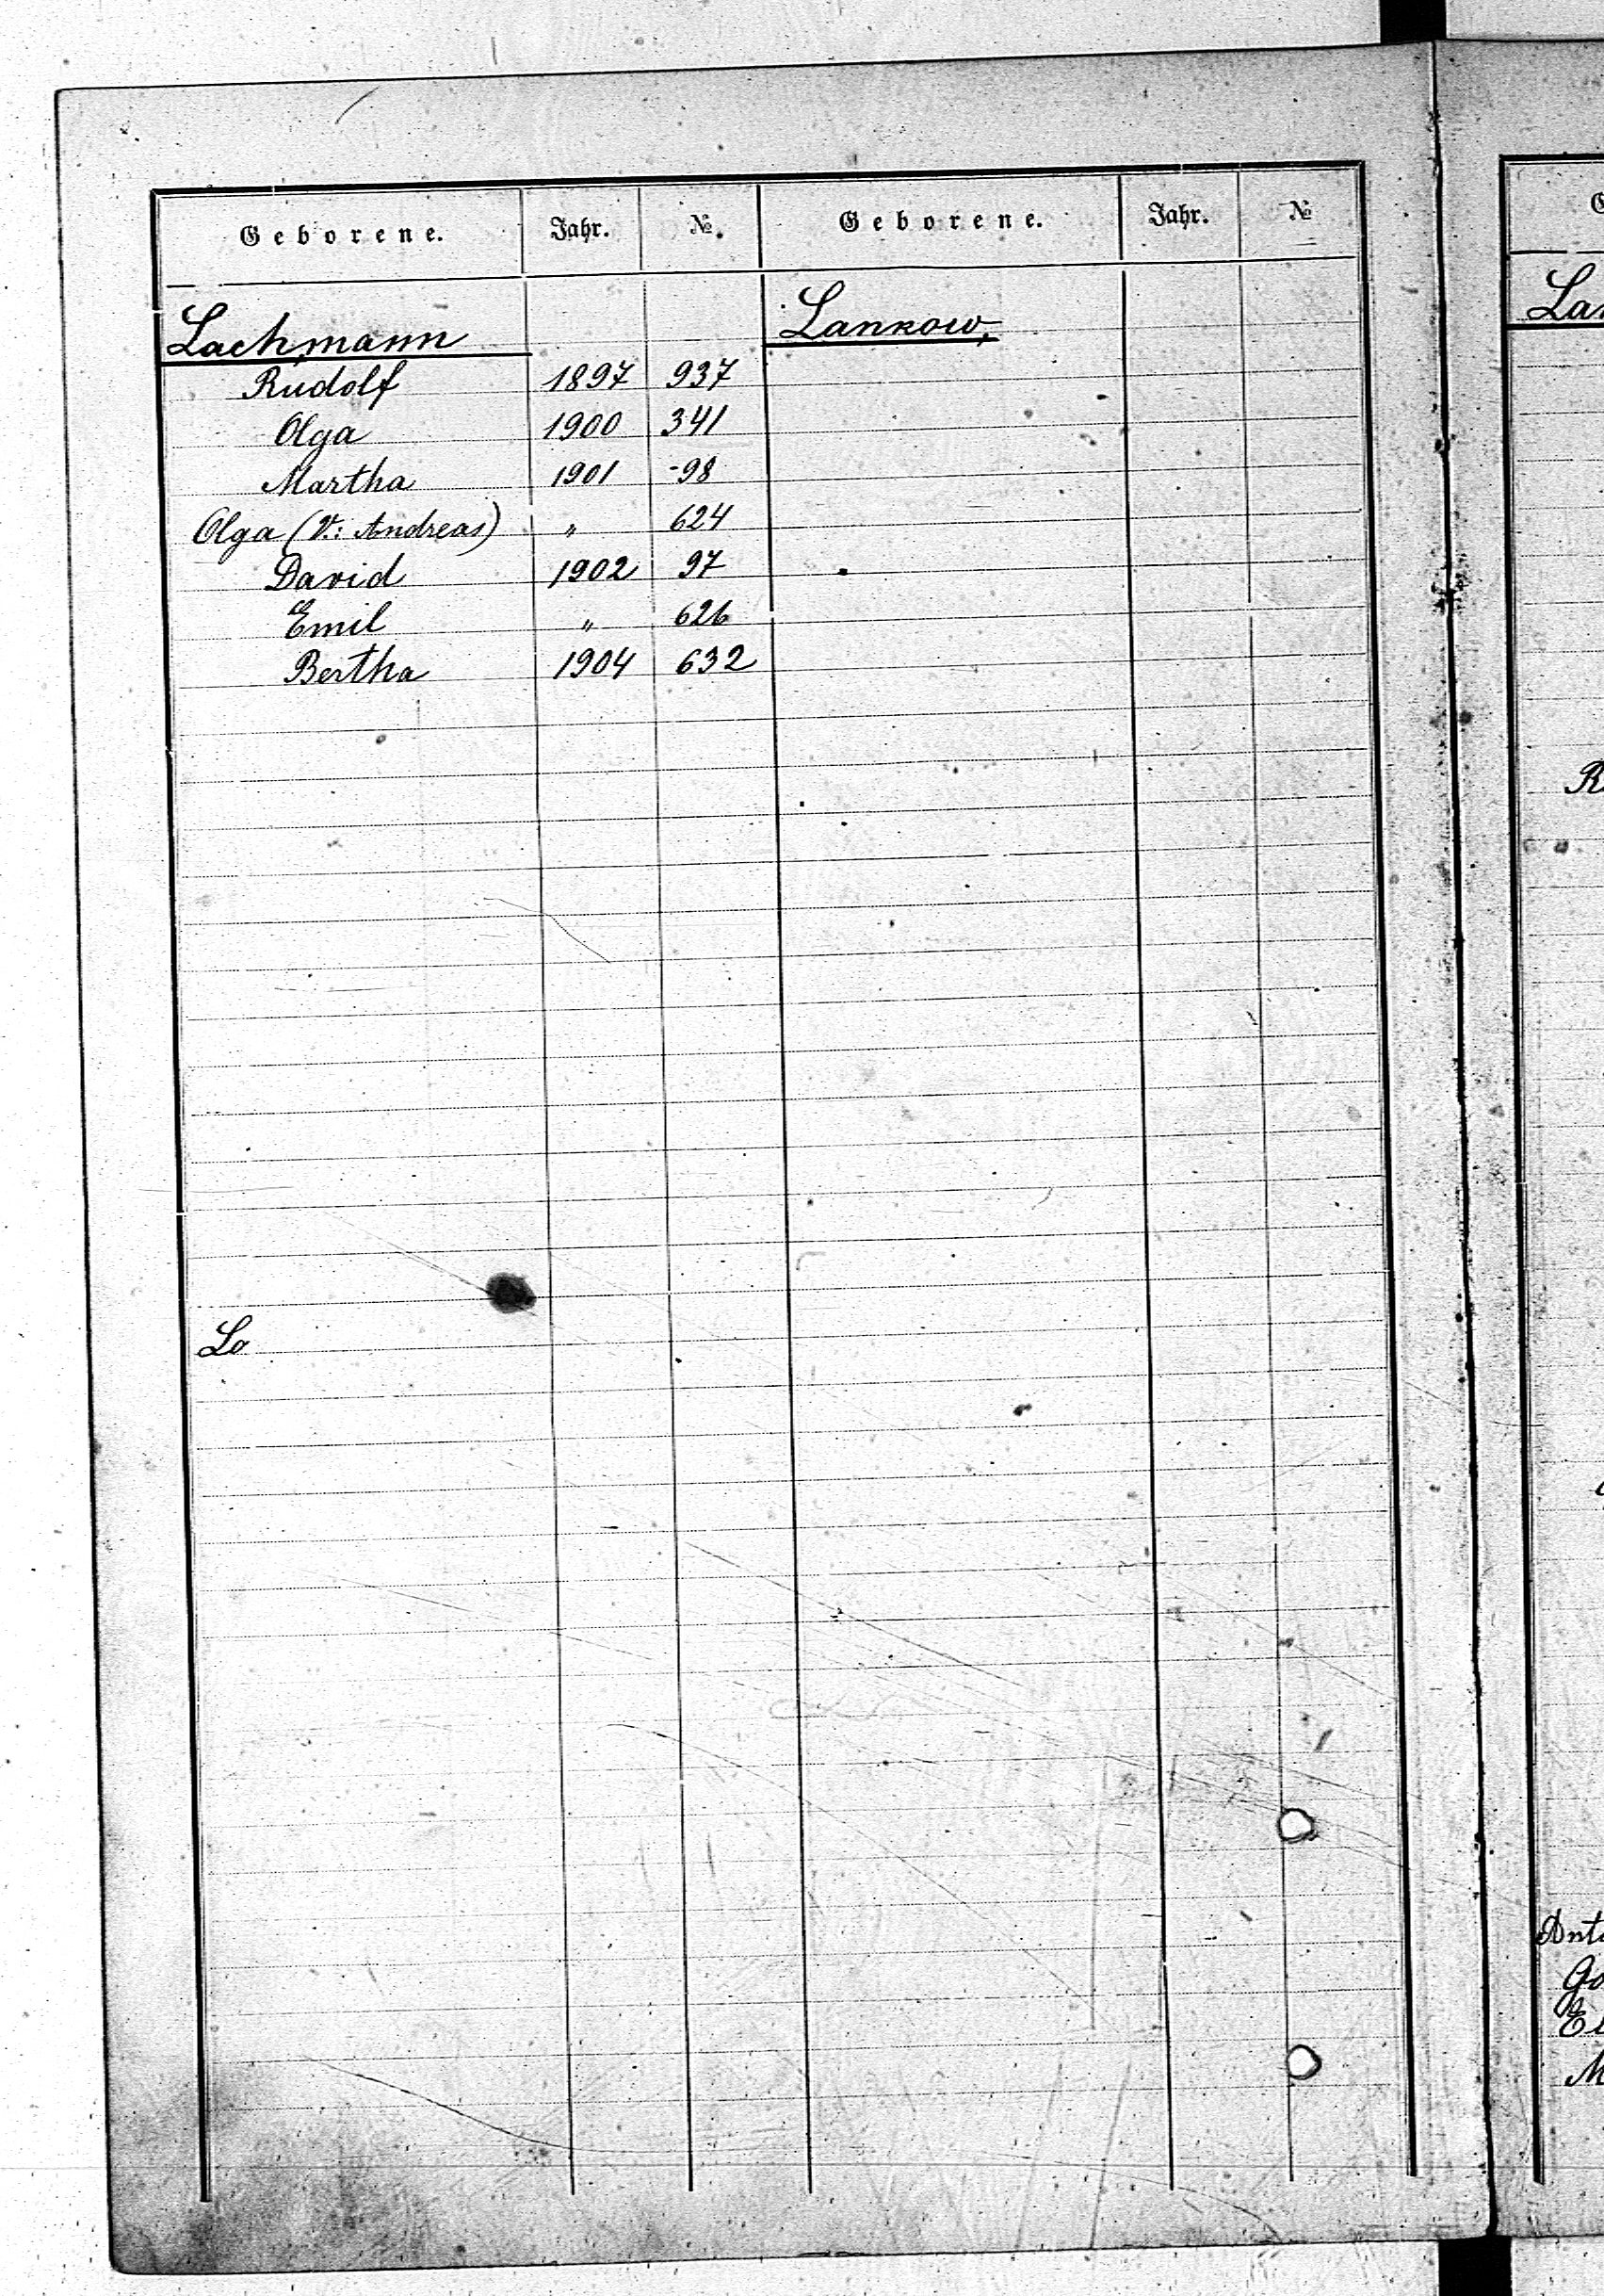 Geborene. Jahr. №. Geborene. Jahr. №
Lachmann
Rudolf 1897 937
Olga 1900 341
Martha 1901 -98
Olga (V.: Andreas) " 624
David 1902 97
Emil " 626
Bertha 1904 632
Lankow,